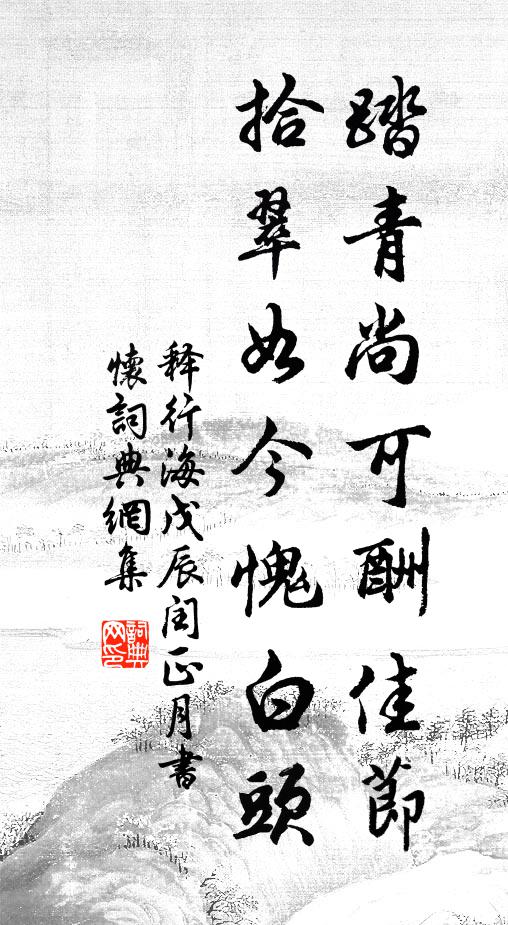 踏青尚可酬佳節
拾翠如今愧白頭
释行海戊辰闰正月書
懷詞典網集
詞典网印